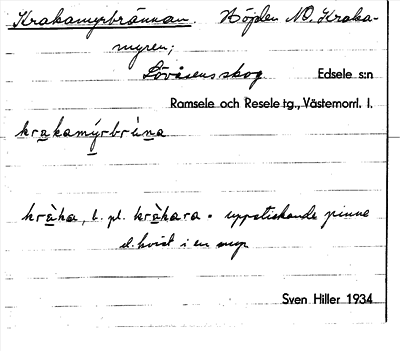 Krakamyrbrännan. Höjden NO. Kraka-
myren;
Lövåsens skog Edsele s:n
Ramsele och Resele tg., Västernorrl. l.
krakamýrbrèna
kràka, b. pl. kràkara = uppstickande pinne
el. kvist i en myr
Sven Hiller 1934